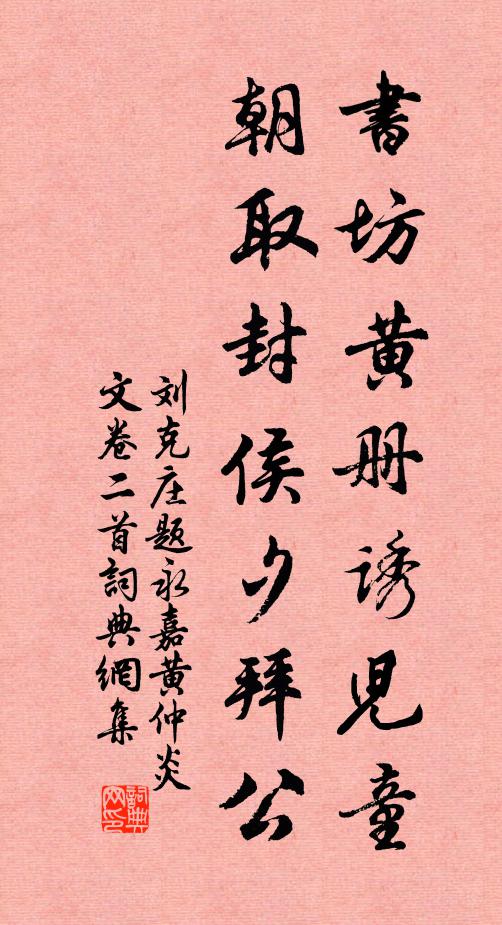 書坊黄册诱兒童
朝取封侯夕拜公
刘克庄题永嘉黄仲炎
文卷二首詞典網集
詞典网印